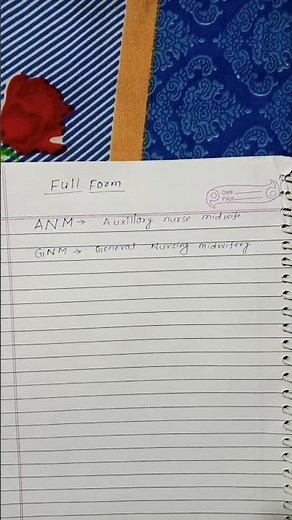 Full Form
Date
Page
ANM → Auxiliary nurse midwife
GNM → General Nursing midwifery